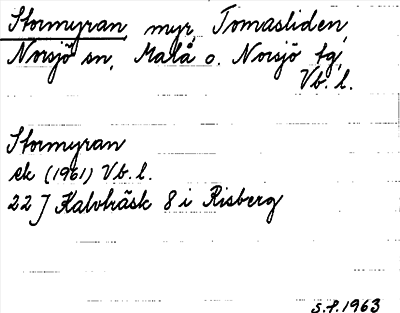 Stormyran myr, Tomasliden,
Norsjö sn, Malå o. Norsjö tg,
Vb. l.
Stormyran
ek (1961) Vb. l.
22 J Kalvträsk 8 i Risberg
S.f. 1963